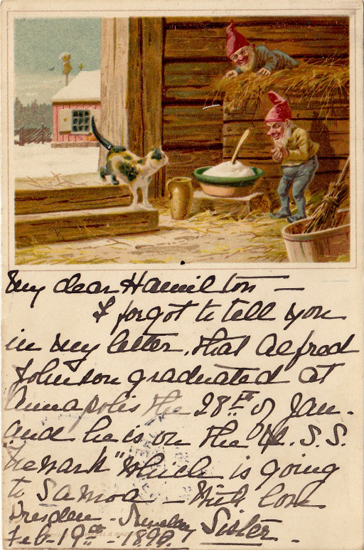 My dear Hamilton —
I forgot to tell you
in my letter, that Alfred
Johnson graduated at
Annapolis the 28th of Jan.
and he is on the U.S.S.
Newark" which is going
to Samoa — With love
Dresden — Sunday Sister.
Feb - 19th - 1899.